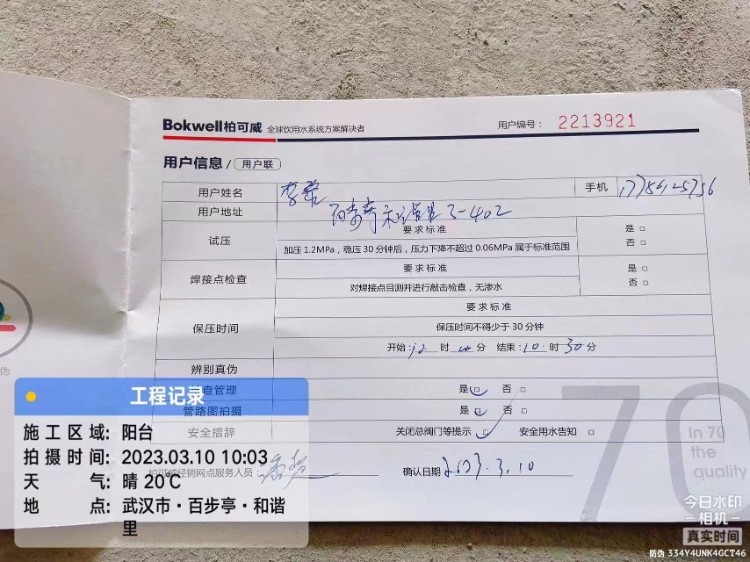 Bokwell柏可威 全球饮用水系统方案解决者 用户编号： 2213921
用户信息 / 用户联
用户姓名 手机
用户地址 3-402
试压 要求标准 是 否
加压1.2MPa，稳压30分钟后，压力下降不超过0.06MPa属于标准范围
焊接点检查 要求标准 是 否
对焊接点目测并进行敲击检查，无渗水
保压时间 要求标准
保压时间不得少于30分钟
开始: 时 分 结束: 10 时 30 分
辨别真伪
查管理 是 否
管路图拍摄 是 否
安全措辞 关闭总阀门等提示 安全用水告知
经销网点服务人员： 确认日期 2023.3.10
70
In 70
the
quality
伪
工程记录
施工区域: 阳台
拍摄时间: 2023.03.10 10:03
天气: 晴 20℃
地点: 武汉市·百步亭·和谐
里
今日水印
相机
真实时间
防伪 334Y4UNK4GCT46